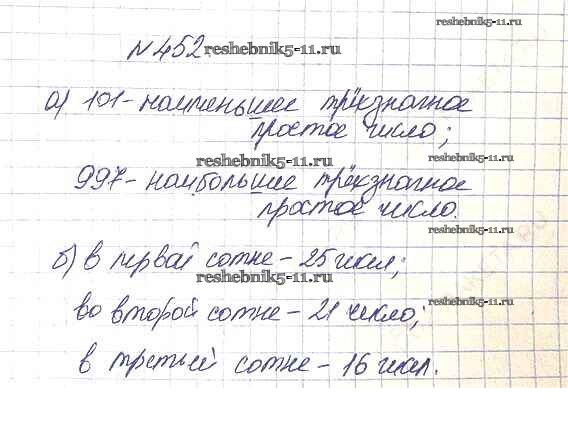 reshebnik5-11.ru
№452 reshebnik5-11.ru
а) 101 - наименьшее трёхзначное
простое число;
reshebnik5-11.ru reshebnik5-11.ru
997 - наибольшее трёхзначное
простое число.
reshebnik5-11.ru
б) в первой сотне - 25 чисел;
reshebnik5-11.ru
во второй сотне - 21 число; reshebnik5-11.ru
в третьей сотне - 16 чисел.